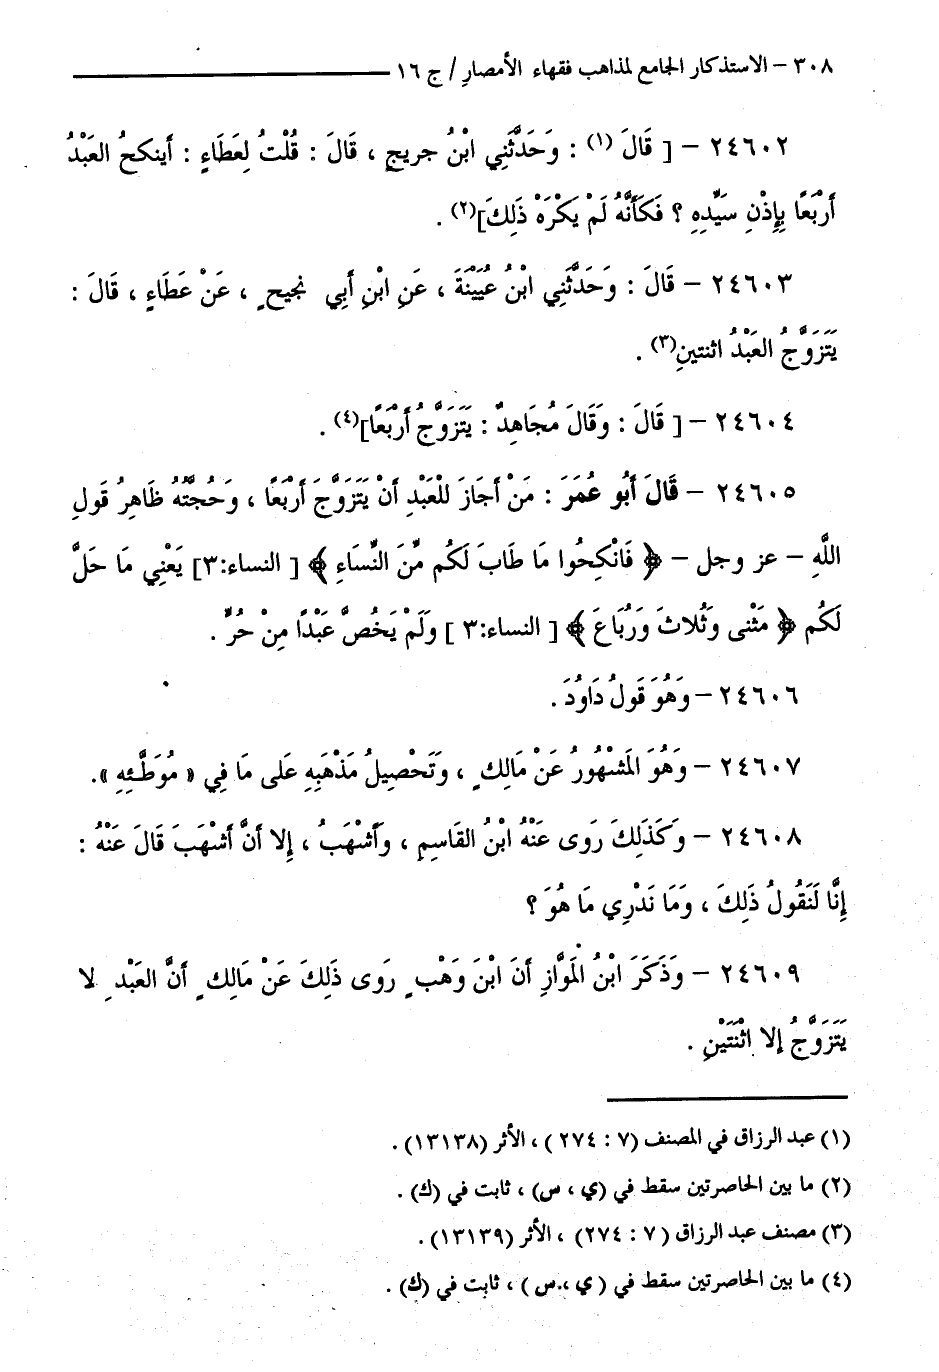 ٣٠٨ – الاستذكار الجامع لمذاهب فقهاء الأمصار / ج ١٦
٢٤٦٠٢ – [ قَالَ (١) : وَحَدَّثَنِي ابْنُ جريجٍ ، قَالَ : قُلْتُ لِعَطَاءٍ : أَينكحُ العَبْدُ
أَرْبَعًا بِإِذْنِ سَيِّدِهِ ؟ فَكَأَنَّهُ لَمْ يَكْرَهْ ذَلِكَ](٢) .
٢٤٦٠٣ – قَالَ : وَحَدَّثَنِي ابْنُ عُيَيْنَةَ ، عَنِ ابْنِ أَبِي نجيحٍ ، عَنْ عَطَاءٍ ، قَالَ :
يَتَزَوَّجُ العَبْدُ اثنتينِ(٣) .
٢٤٦٠٤ – [ قَالَ : وَقَالَ مُجَاهِدٌ : يَتَزَوَّجُ أَرْبَعًا](٤) .
٢٤٦٠٥ – قَالَ أَبُو عُمَرَ : مَنْ أَجَازَ لِلْعَبْدِ أَنْ يَتَزَوَّجَ أَرْبَعًا ، وَحُجَّتُهُ ظَاهِرُ قَولِ
اللَّهِ – عز وجل – ﴿ فَانْكِحُوا مَا طَابَ لَكُم مِّنَ النِّسَاءِ ﴾ [ النساء:٣] يَعْنِي مَا حَلَّ
لَكُم ﴿ مَثْنى وَثُلاثَ وَرُبَاعَ ﴾ [ النساء:٣ ] وَلَمْ يَخُصَّ عَبْدًا مِنْ حُرٍّ .
٢٤٦٠٦ – وَهُوَ قَولُ دَاوُدَ .
٢٤٦٠٧ – وَهُوَ المَشْهُورُ عَنْ مَالِكٍ ، وَتَحْصِيلُ مَذْهَبِهِ عَلى مَا فِي « مُوَطَّئِهِ ».
٢٤٦٠٨ – وَكَذَلِكَ رَوى عَنْهُ ابْنُ القَاسِمِ ، وَأَشْهَبُ ، إِلا أَنَّ أَشْهَبَ قَالَ عَنْهُ :
إِنَّا لَنَقُولُ ذَلِكَ ، وَمَا نَدْرِي مَا هُوَ ؟
٢٤٦٠٩ – وَذَكَرَ ابْنُ الْمَوَّازِ أَنَ ابْنَ وَهْبٍ رَوى ذَلِكَ عَنْ مَالِكٍ أَنَّ العَبْدِ لا
يَتَزَوَّجُ إِلا اثْنَتَيْنِ .
(١) عبد الرزاق في المصنف (٧ : ٢٧٤ ) ، الأثر (١٣١٣٨) .
(٢) ما بين الحاصرتين سقط في (ي ، س) ، ثابت في (ك) .
(٣) مصنف عبد الرزاق ( ٧ : ٢٧٤) ، الأثر (١٣١٣٩) .
(٤) ما بين الحاصرتين سقط في ( ي ، س ) ، ثابت في (ك) .